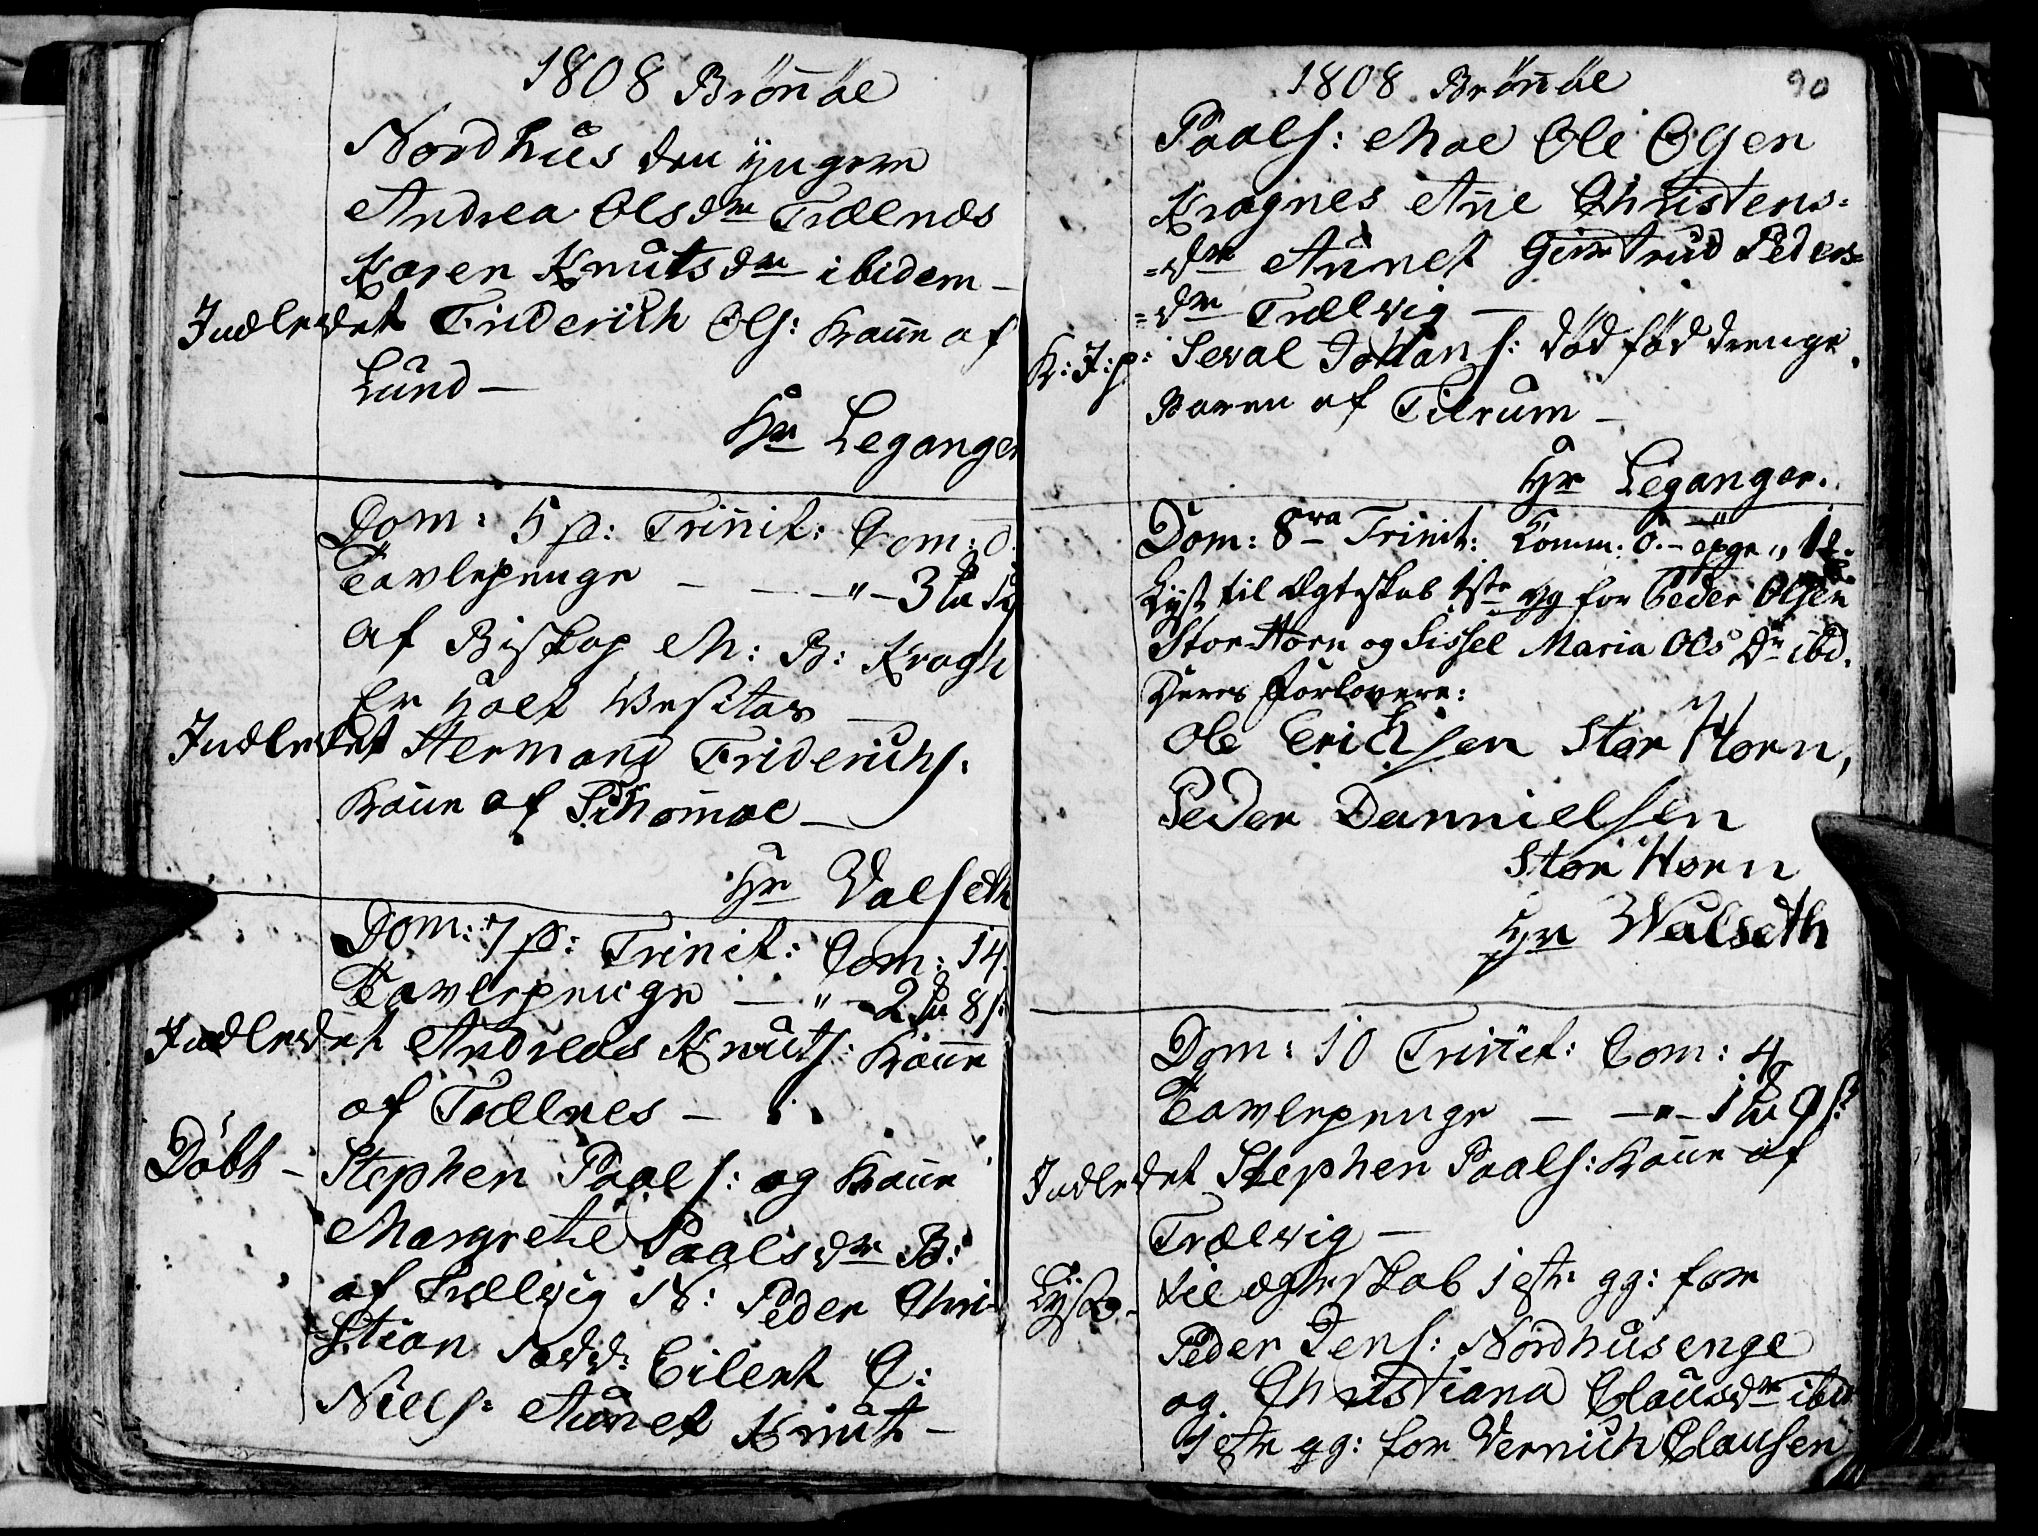 1808 Brönöe
Nordhus den yngere
Andrea Olsdr Trælnæs
Karen Knutsdr ibidem —
Indledet Friderich Ols: Kone af
Lund —
Hr Leganger
Dom: 5 p: Trinit: Com: 0.
Tavlepenge — — " — 3
af Biskop M: B: Krogh
Er holt Visitas —
Indledet Hermand Friderichs:
Kone af —
Hr Valseth
Dom: 7 p: Trinit: Com: 14.
Tavlepenge — " — 2 8 s.
Indledet Andreas Knuts: Kone
af Trælnes —
Döbt — Stephen Paals: og Kone
Margrete Paalsdr B:
af Trælvig N: Peder Chri-
=stian Fadd: Eilert C:
Niels: Aunet Knut —
1808 Brönöe 90
Paals: Moe Ole Olsen
Kragnes Ane Christens=
=dr Aunet Giertrud Peders=
=dr Trælvig —
K: I: p: Seval Johans: död föd drenge
Barn af Tilrum —
Hr Leganger.
Dom: 8va Trinit: Komm: 0. —
Lyst til Ægteskab 1ste gg for Peder Olsen
Stor Horn og Sissel Maria Olsdr ibd.
Deres Forlovere:
Ole Erichsen Stor Horn,
Peder Dannielsen
Stor Horn
Hr Walseth
Dom: 10 Trinit: Com: 4
Tavlepenge — — " — 1 9 s:
Indledet Stephen Paals: Kone af
Trælvig —
Lyst — til ægteskab 1ste gg: for
Peder Jens: Nordhusenge
og Christiana Clausdr ibid
1ste gg: for Vernich Clausen